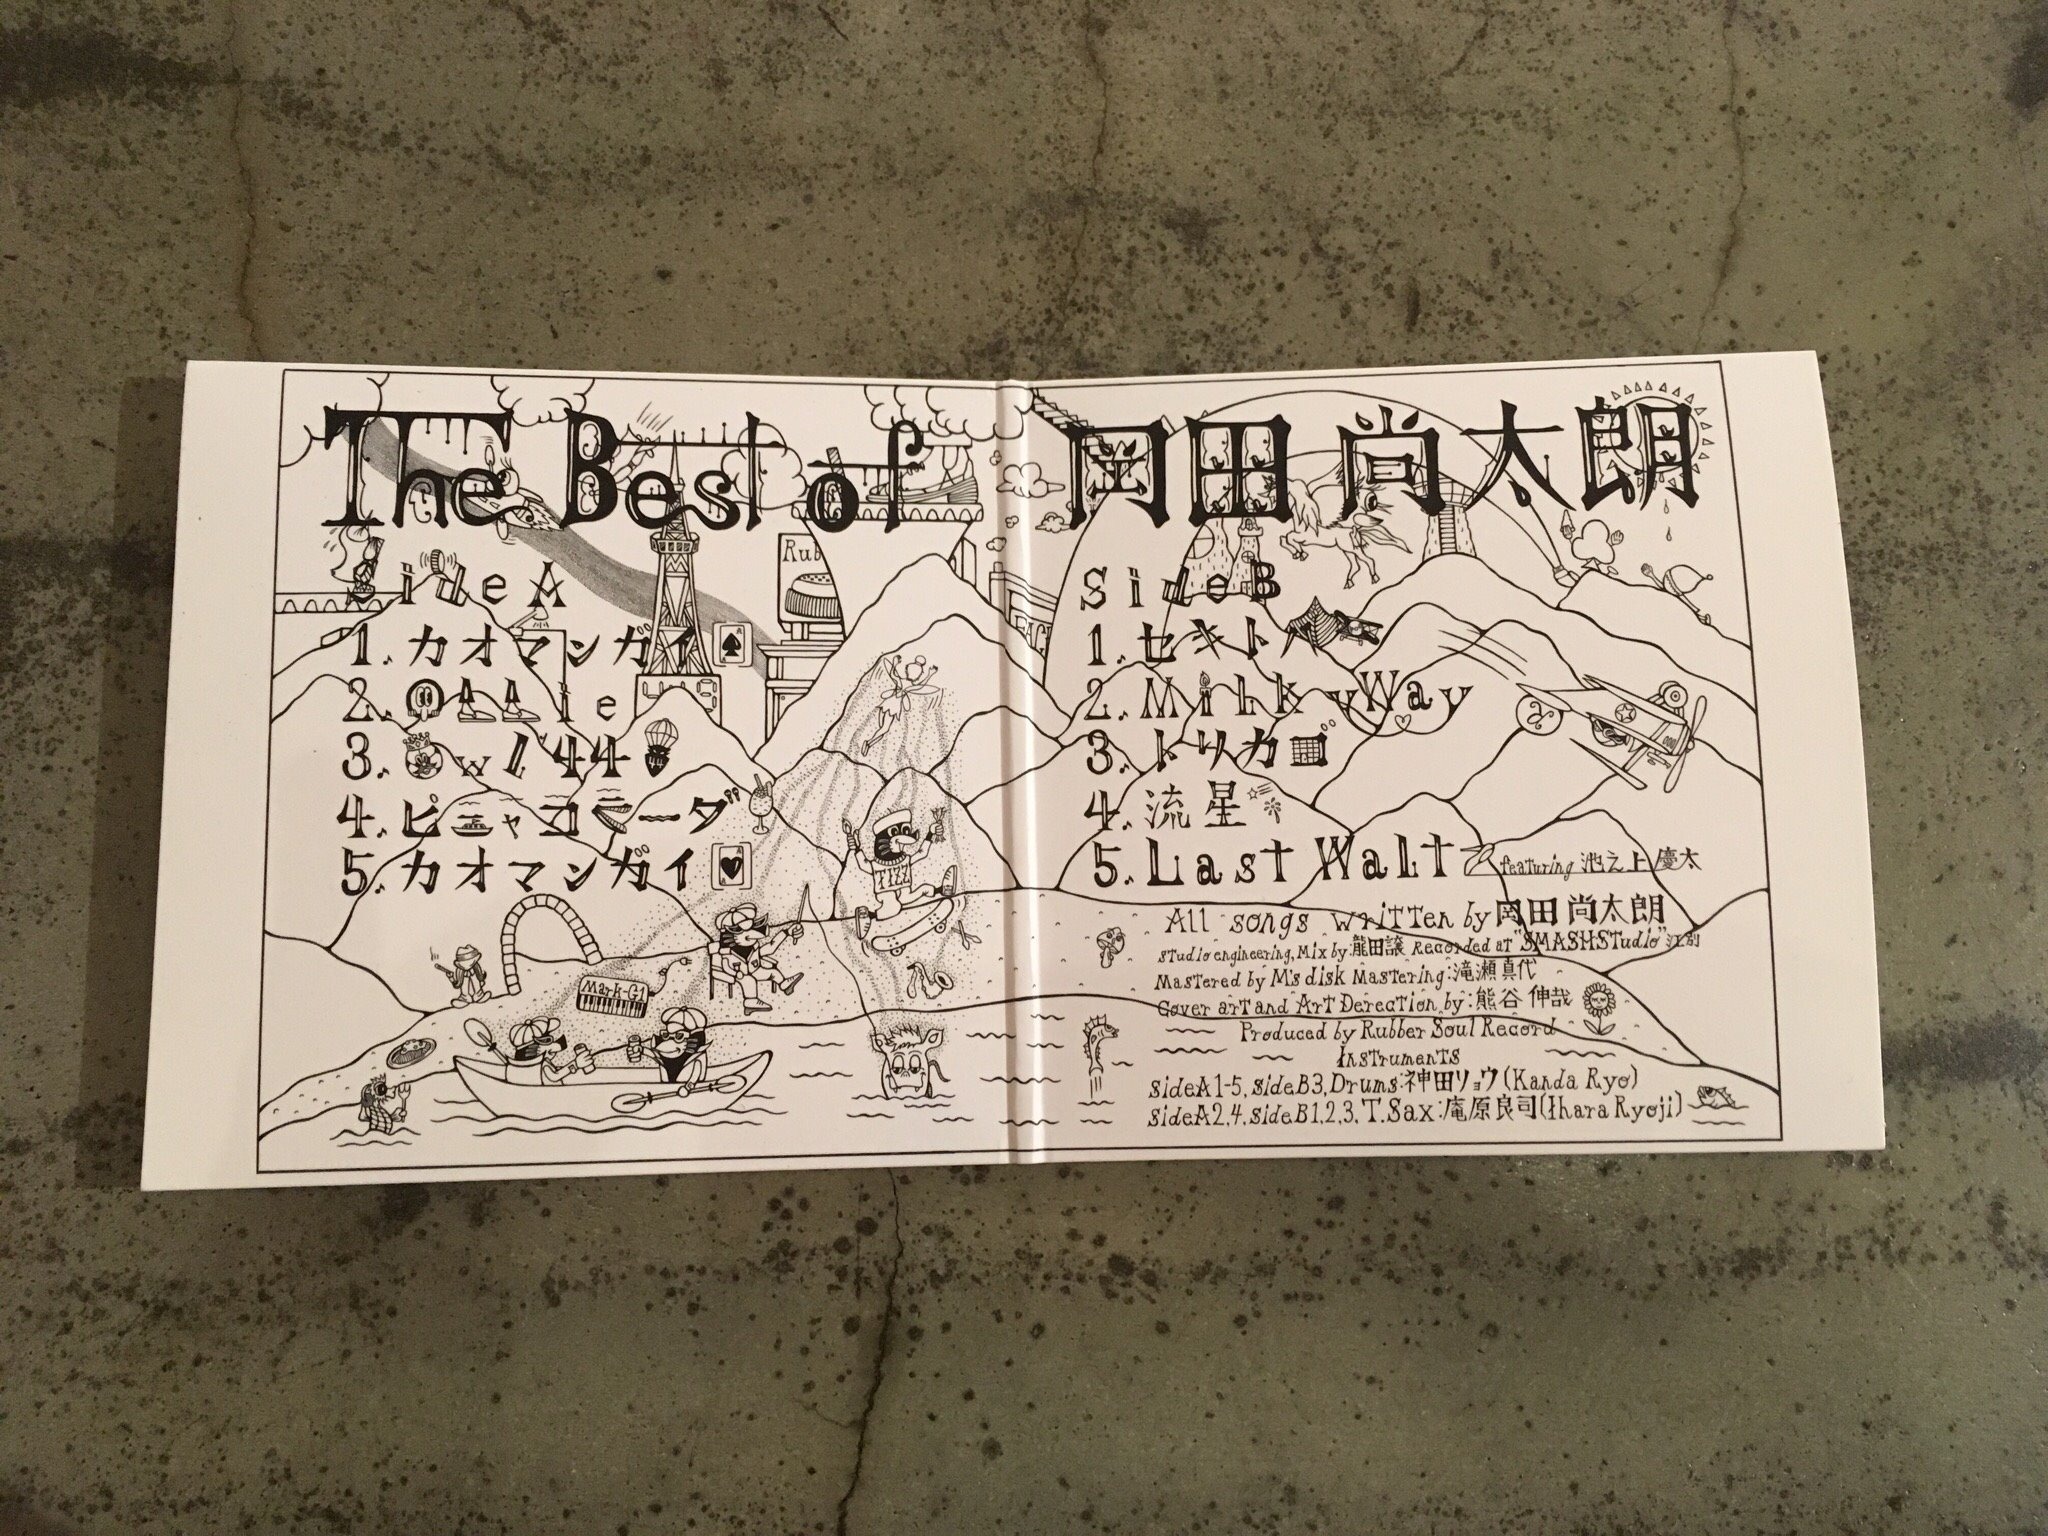 The Best of 岡田尚太朗
Side A
1. カオマンガイ
2. Oasie
3. Owl 44
44
4. ピニャコラーダ
5. カオマンガイ
Side B
1. セキトバ
2. Milky Way
3. トリカゴ
4. 流星
5. Last Waltz featuring 池之上慶太
All songs written by 岡田尚太朗
Studio engineering, Mix by 龍田譲 Recorded at "SMASHSTudio" 江別
Mastered by M's disk Mastering:滝瀬真代
Cover art and Art Derection by:熊谷伸哉
Produced by Rubber Soul Record
Instruments
sideA1-5, sideB3, Drums:神田リョウ(Kanda Ryo)
sideA2,4, sideB1,2,3, T.Sax:庵原良司(Ihara Ryoji)
Rub
TIZZ
Mark-G1